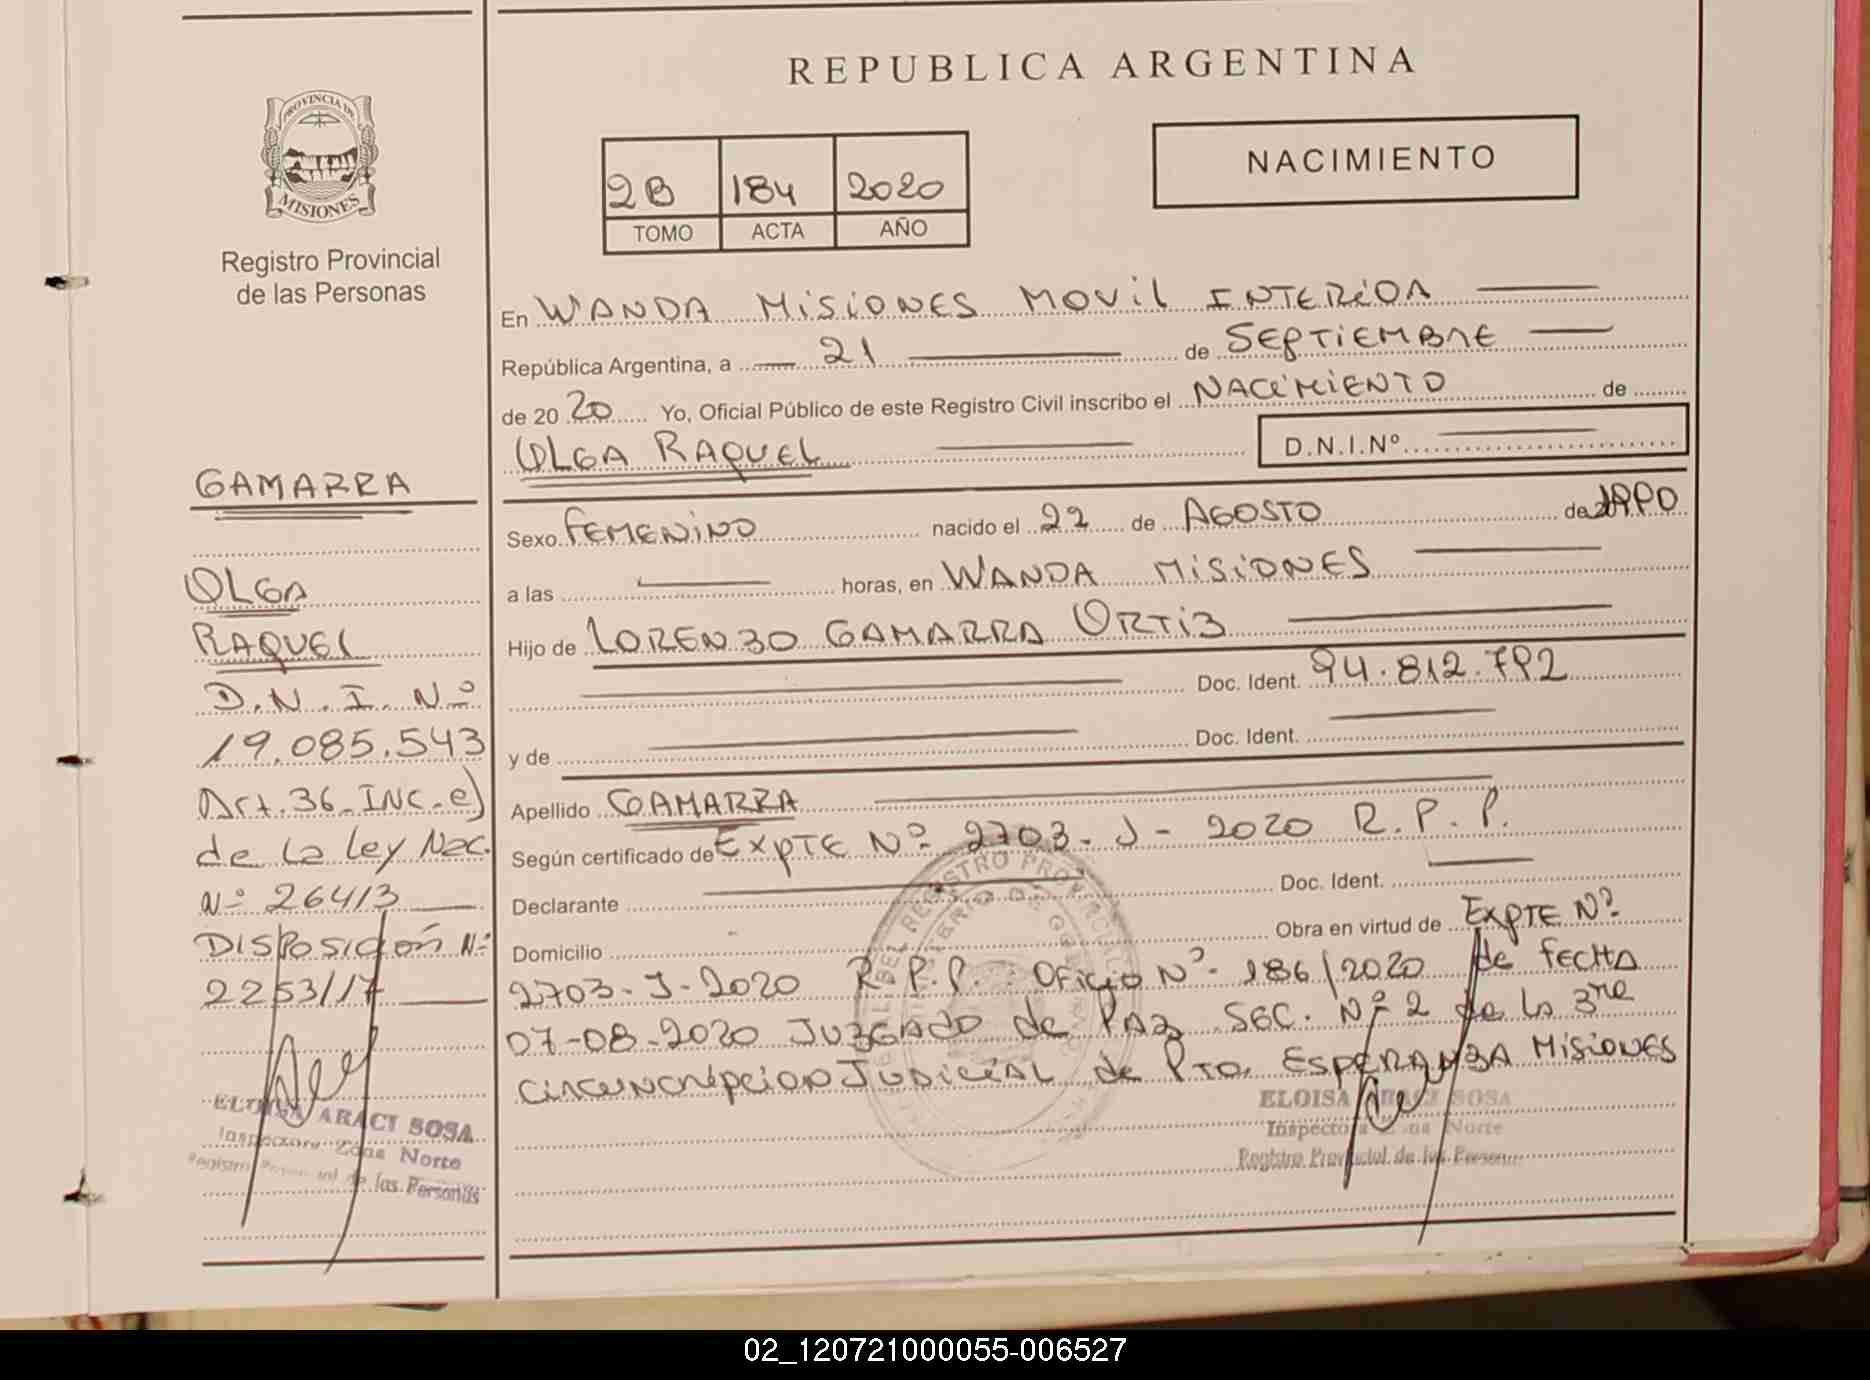 REPUBLICA ARGENTINA
PROVINCIA DE
MISIONES
Registro Provincial
de las Personas
2B 184 2020
TOMO ACTA AÑO
NACIMIENTO
En WANDA MISIONES MOVIL INTERIOR
República Argentina, a 21 de SEPTIEMBRE
de 2020 Yo, Oficial Público de este Registro Civil inscribo el NACIMIENTO de
OLGA RAQUEL D.N.I.Nº
Sexo FEMENINO nacido el 22 de AGOSTO de 1990
a las horas, en WANDA MISIONES
Hijo de LORENZO GAMARRA ORTIZ
Doc. Ident. 94.812.792
y de Doc. Ident.
Apellido GAMARRA
Según certificado de EXPTE Nº 2703-J-2020 R.P.P.
Declarante Doc. Ident.
Domicilio Obra en virtud de EXPTE Nº
2703-J-2020 R.P.P. OFICIO Nº 186/2020 de FECHA
07-08-2020 JUZGADO de PAZ SEC. Nº 2 de la 3ra
CIRCUNCRIPCION JUDICIAL de PTO. ESPERANZA MISIONES
ELOISA ARACI SOSA
Inspectora Zona Norte
Registro Provincial de las Personas
GAMARRA
OLGA
RAQUEL
D.N.I. Nº
19.085.543
Art. 36 - INC - e)
de la ley Nac.
Nº 26413
DISPOSICIÓN Nº
2253/17
ELOISA ARACI SOSA
Inspectora Zona Norte
Registro Provincial de las Personas
02_120721000055-006527